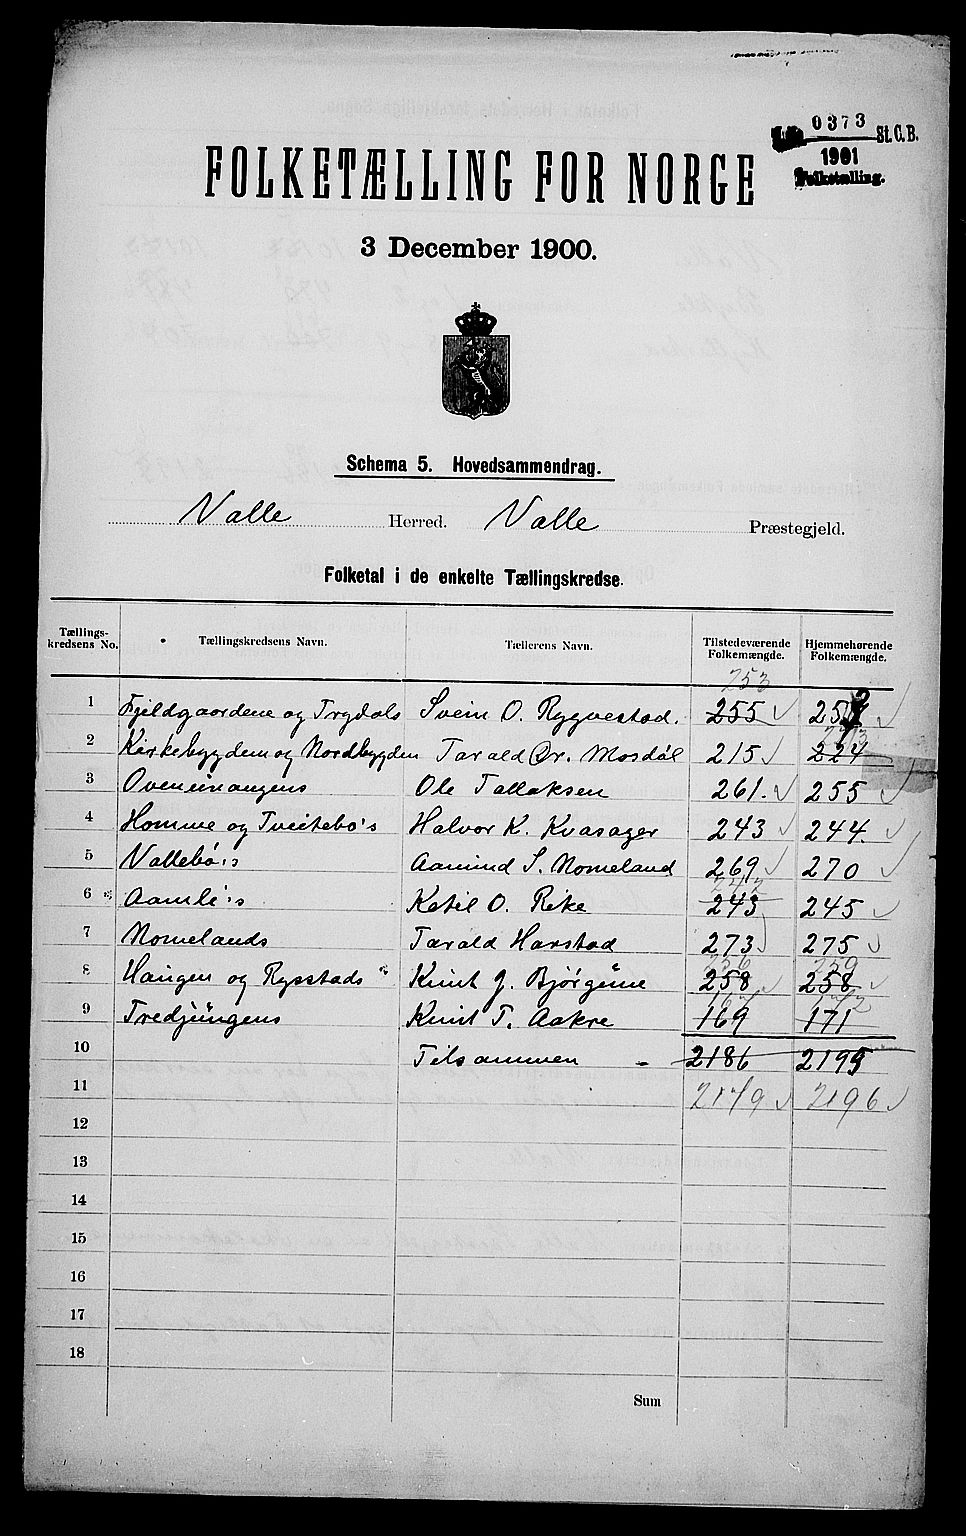 0373 St.C.B.
1901
Folketælling.
FOLKETÆLLING FOR NORGE
3 December 1900.
Schema 5. Hovedsammendrag.
Valle Herred. Valle Præstegjeld.
Folketal i de enkelte Tællingskredse.
Tællings-kredsens No. Tællingskredsens Navn. Tællerens Navn. Tilstedeværende Folkemængde. Hjemmehørende Folkemængde.
253
1 Fjeldgaardene og Trydals Svein O. Rygnestad. 255
2 Kirkebygden og Nordbygden Tarald Or. Mosdøl 215
3 Ovenunangens Ole Tallaksen 261. 255
4 Homme og Tveitebø's Halvor K. Kvasager 243 244.
5 Vallebø's Aamund S. Nomeland 269 270
242
6 Aamli's Ketil O. Rike 243 245
7 Nomelands Tarald Harstad 273 275
256 259
8 Haugen og Rysstads Knut J. Bjørgum 258 258
167 172
9 Tredjungens Knut T. Aakre 169 171
10 Tilsammen - 2186 2195
11 2179 2196
12
13
14
15
16
17
18
Sum